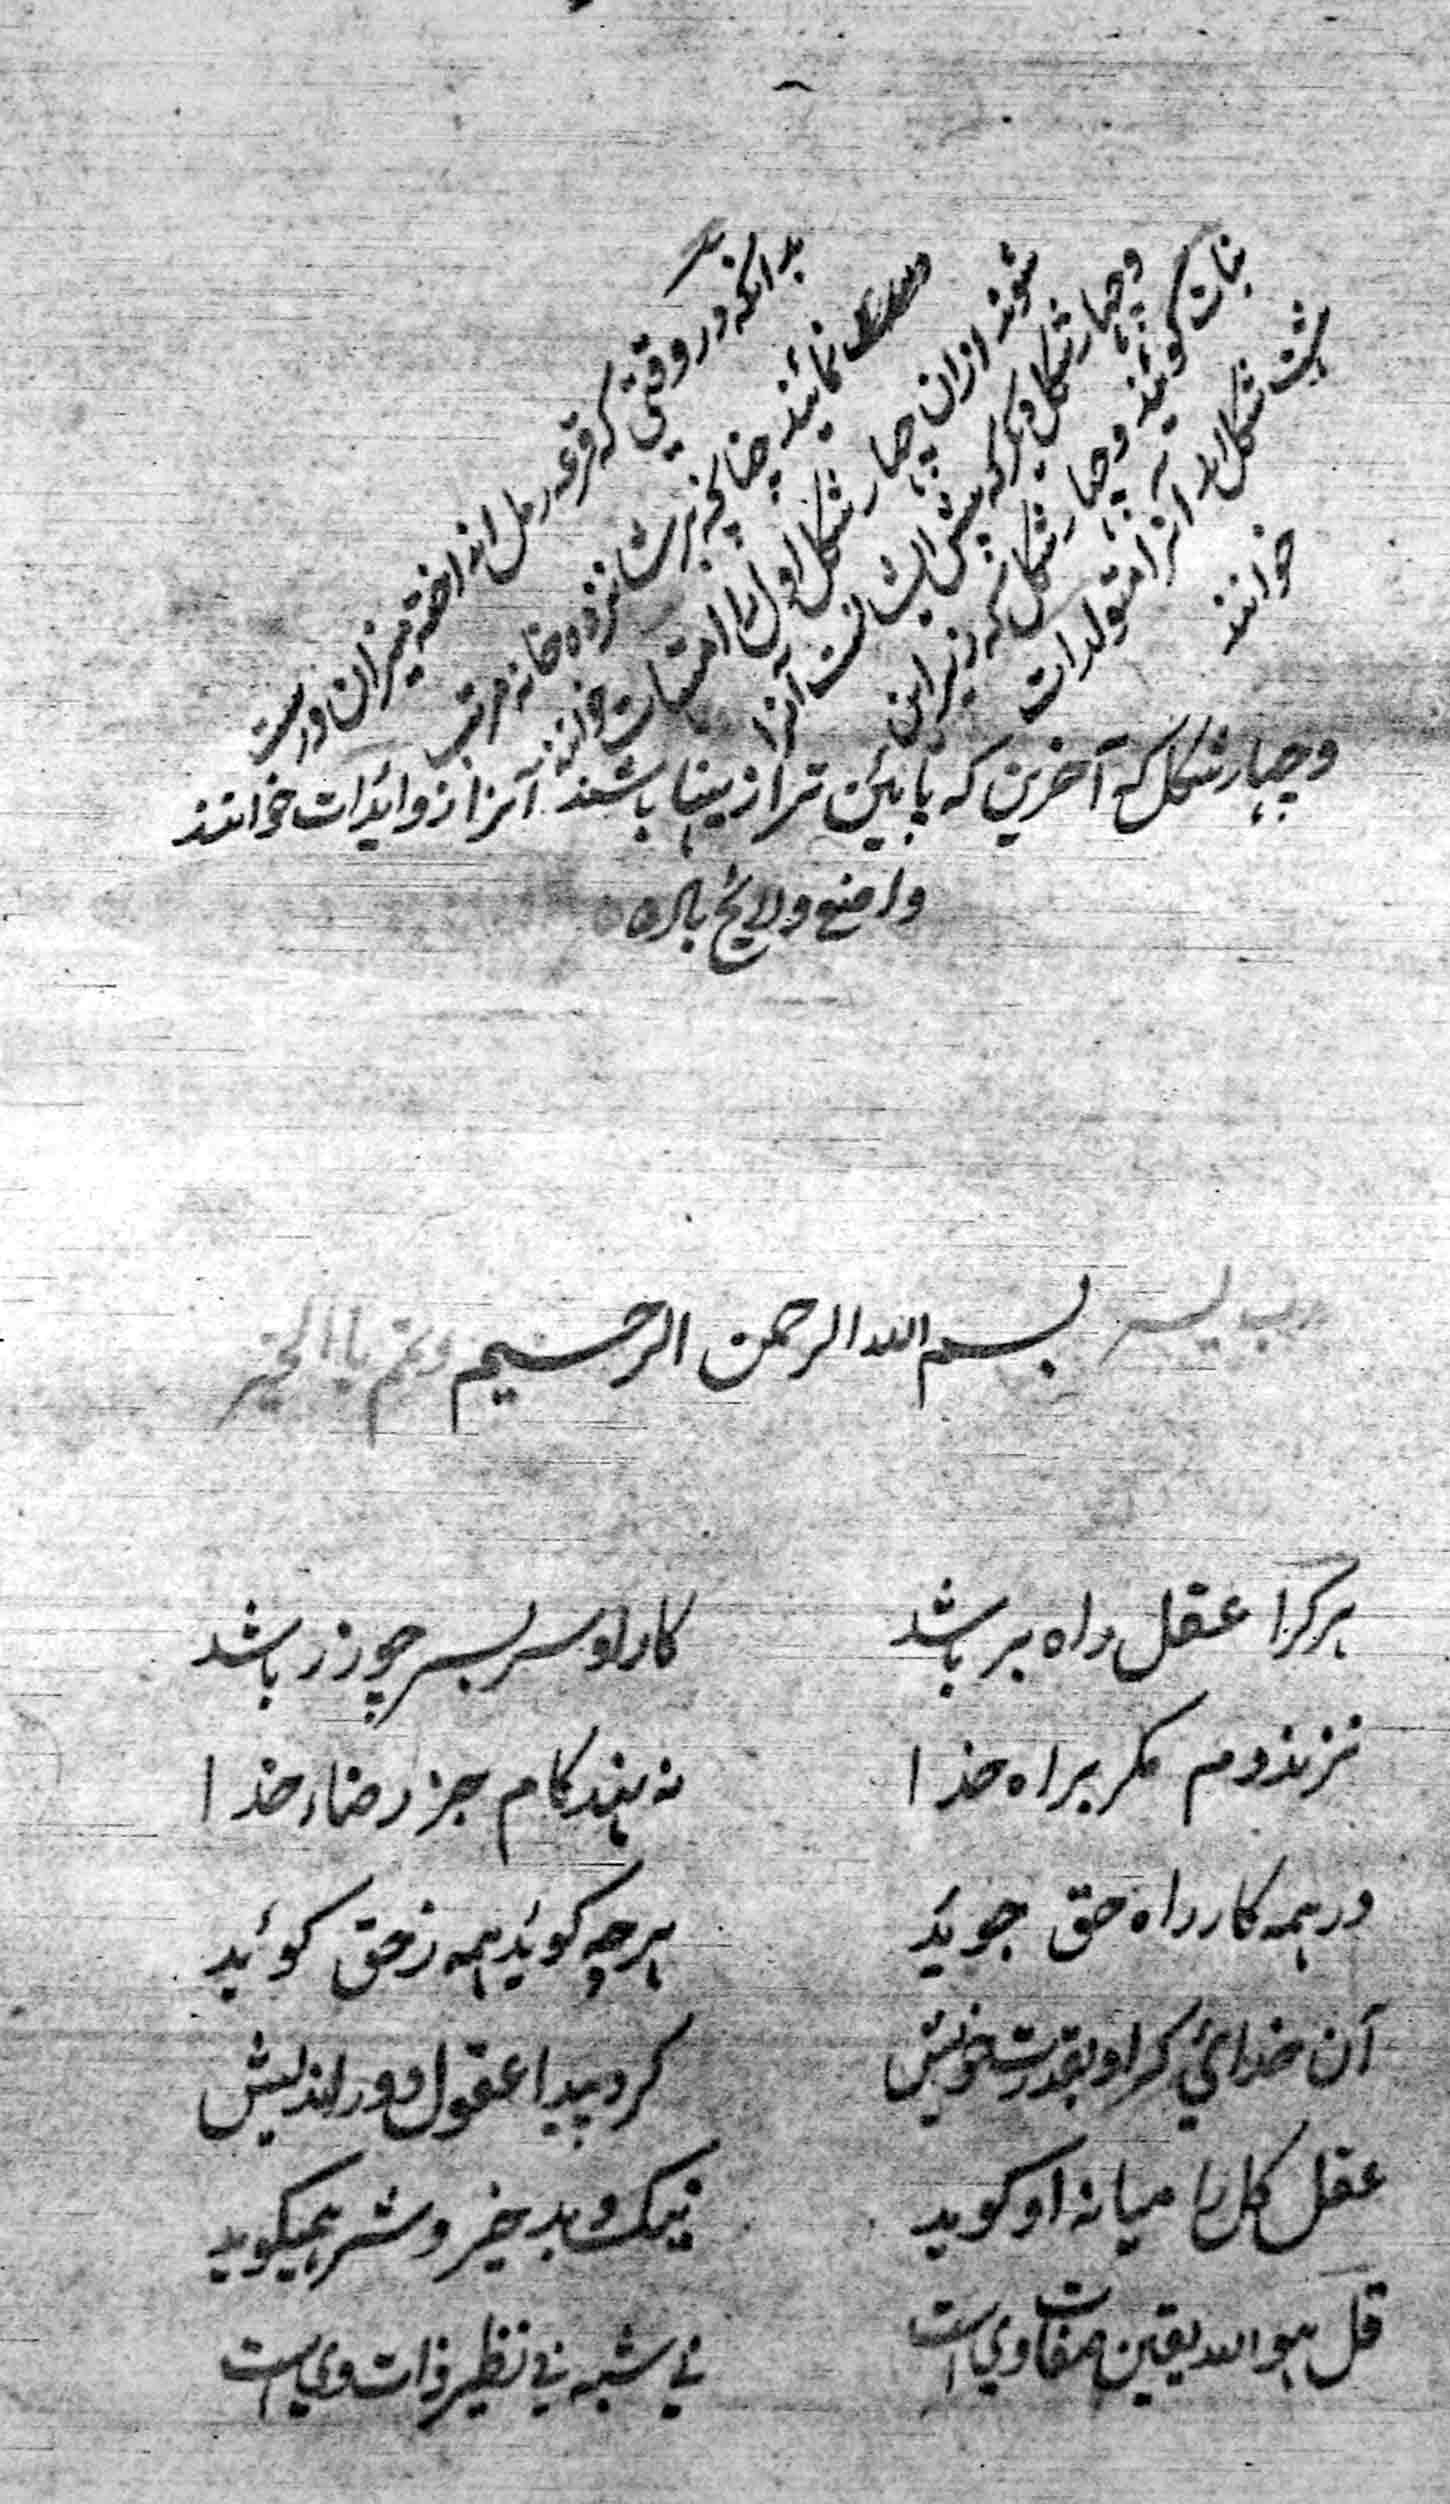 بدانکه در وقتی که قرعه رمل انداخته میزان درست
نمائیند چنانچه بر شانزده خانه مرتب
شوند ازان چهار شکل اول را امهات خوانند
و چهار شکل دیگر که پیش ایشانست آنرا
بنات گویند و چهار شکل که زیر این
هشت شکل اند آنرا متولدات
خوانند
و چهار شکل که آخرین که پائین تر ازینها باشند آنرا زوایدات خوانند
رب یسر بسم الله الرحمن الرحیم وتمم باالخیر
هر کرا عقل راه بر باشد کار او سر بسر چو زر باشد
نزند دم مکر براه خدا نه نهد کام جز رضاء خدا
در همه کار راه حق جوید هر چه کوید همه ز حق کوید
آن خدائی که او بقدرت خویش کرد پیدا عقول دور اندیش
عقل کل را میانه او کوید نیک و بد خیر و شر همیکوید
قل هو الله یقین صفات وی است نی شبه نی نظیر ذات وی است